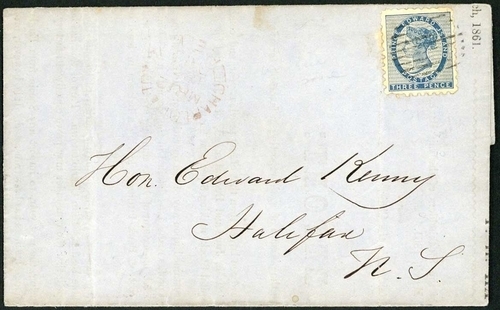 PRINCE EDWARD ISLAND
POSTAGE
THREE PENCE
ch, 1861.
Hon. Edward Kenny
Halifax
N. S.